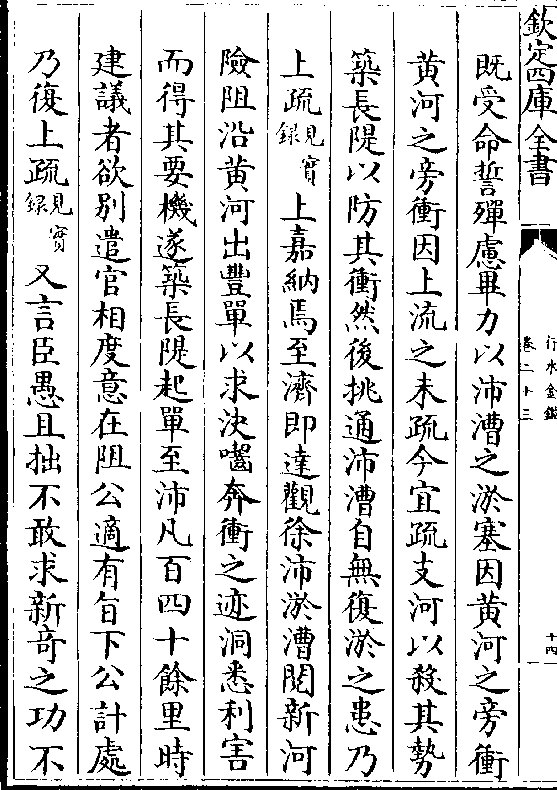 欽定四庫全書
行水金鑑
卷二十三
十四
既受命誓殫慮畢力以沛漕之淤塞因黃河之旁衝
黃河之旁衝因上流之未疏今宜疏支河以殺其勢
築長隄以防其衝然後挑通沛漕自無復淤之患乃
上疏見實錄上嘉納焉至濟即達觀徐沛淤漕閱新河
險阻沿黃河出豐單以求決囓奔衝之迹洞悉利害
而得其要機遂築長隄起單至沛凡百四十餘里時
建議者欲別遣官相度意在阻公適有旨下公計處
乃復上疏見實錄又言臣愚且拙不敢求新奇之功不